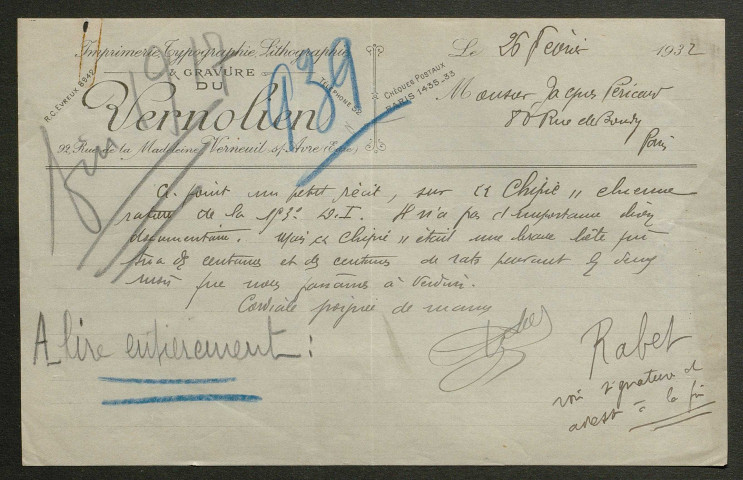 Imprimerie Typographie, Lithographie
& GRAVURE
DU
Vernolien
R.C. EVREUX 8942
TÉLÉPHONE 52
CHÈQUES POSTAUX
PARIS 1435-33
92, Rue de la Madeleine, Verneuil s/ Avre (Eure)
939
Le 26 Février 1932
Monsieur Jacques Péricard
Rue de
Paris
Ci joint un petit récit, sur "Chipie" chienne
de la D.I. Il n'a pas d'importance
documentaire. Mais "Chipie" était une brave bête qui
tua des centaines et des centaines de rats pendant les deux
mois que nous passâmes à Verdun.
Cordiale poignée de mains
Rabet
A lire entièrement :
voir signature et
à la fin